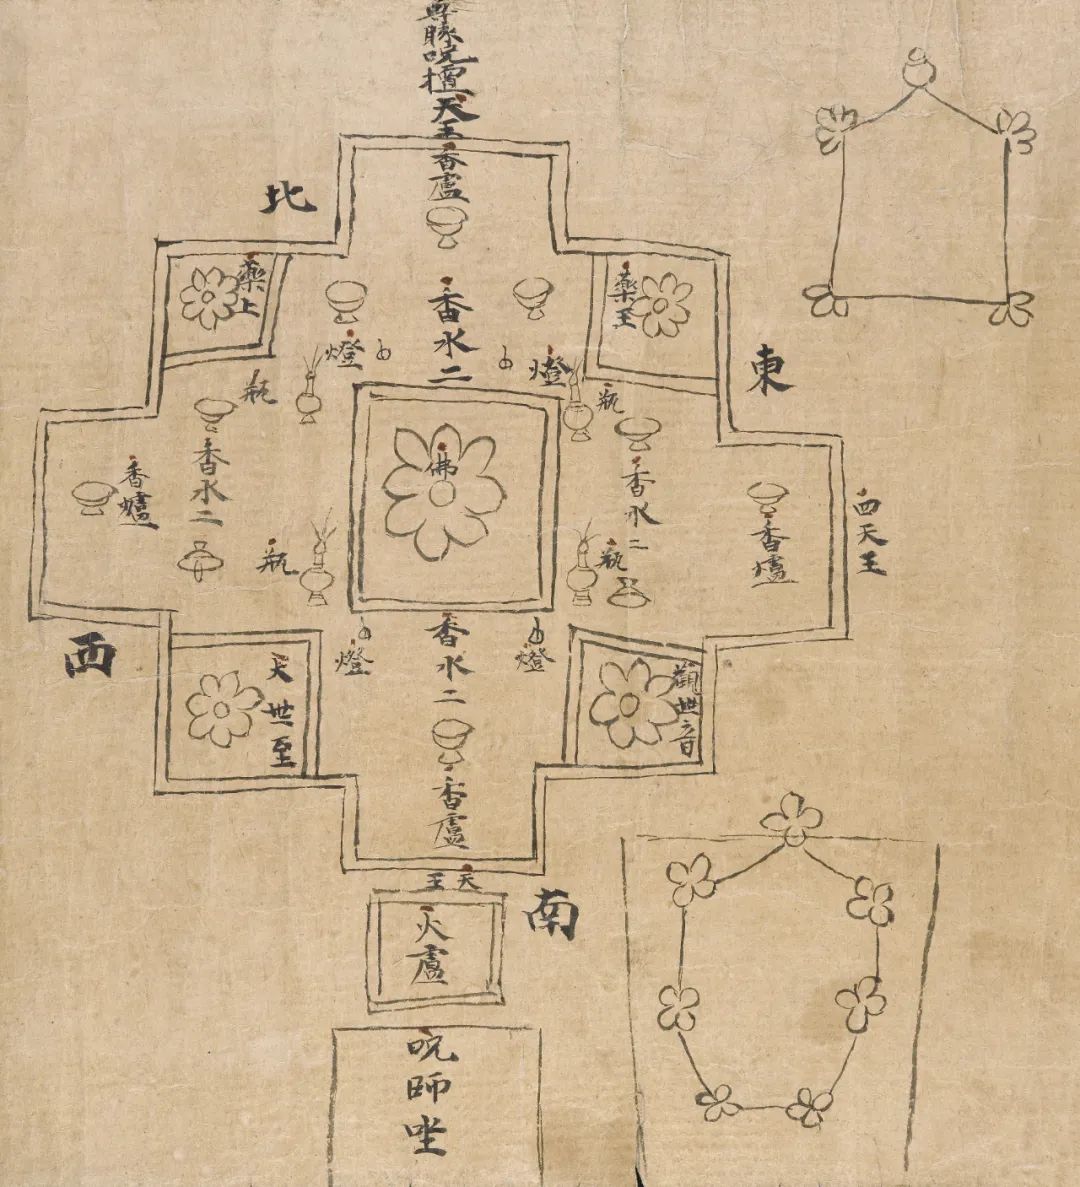 尊勝咒壇
天王
香盧
北
藥上
藥王
香水二
燈
燈
瓶
瓶
東
佛
香爐
香水二
香水二
香爐
四天王
瓶
瓶
西
燈
燈
香水二
大世至
觀世音
香盧
天王
南
火盧
咒師坐